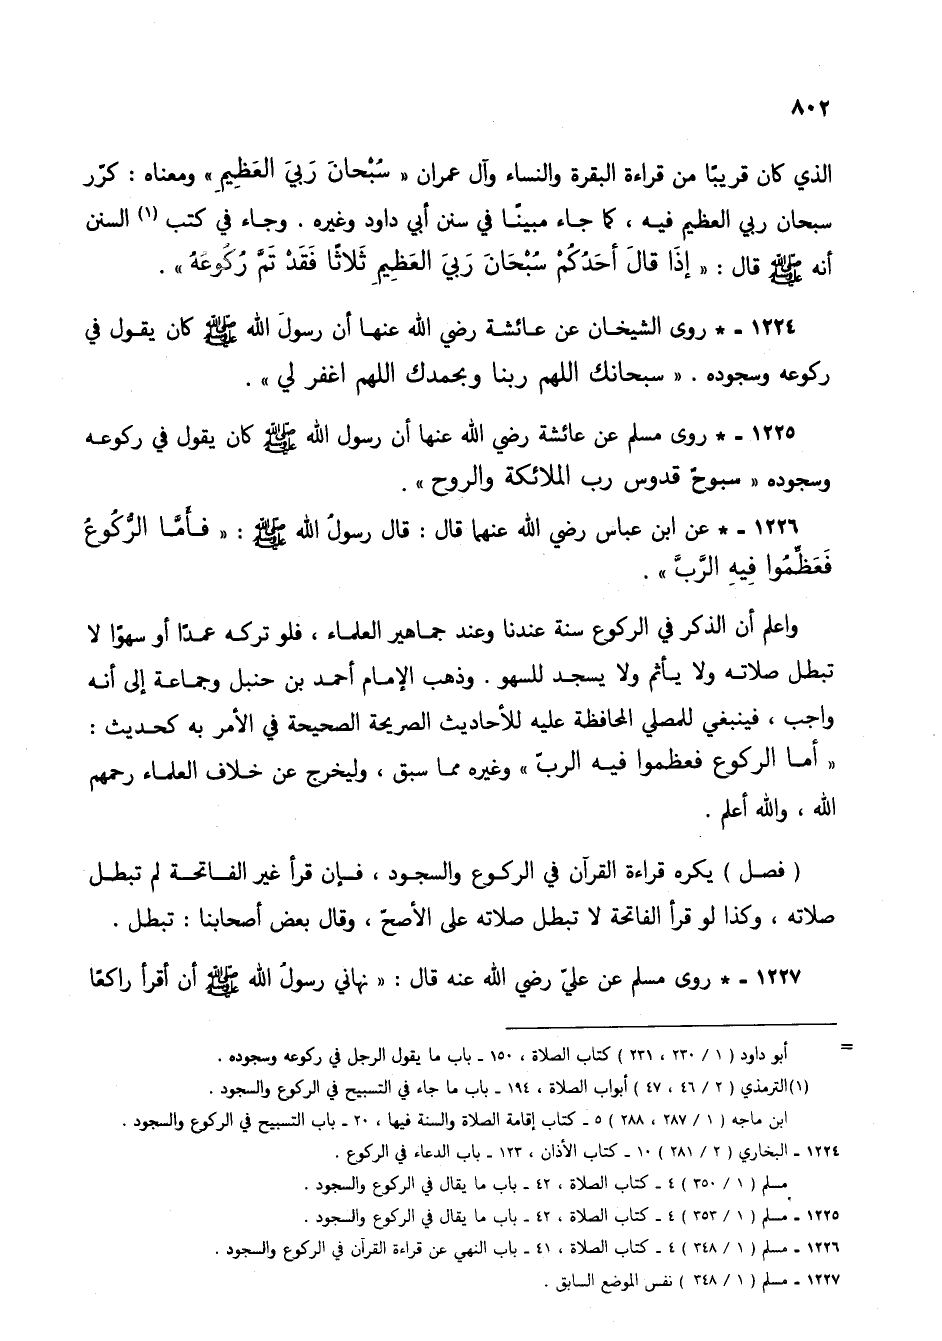 ٨٠٢
الذي كان قريبًا من قراءة البقرة والنساء وآل عمران « سُبْحانَ رَبيَ العَظِيمِ » ومعناه : كرّر
سبحان ربي العظيم فيه ، كما جاء مبينًا في سنن أبي داود وغيره . وجاء في كتب (١) السنن
أنه ﷺ قال : « إذَا قالَ أَحَدُكُمْ سُبْحَانَ رَبيَ العَظِيمِ ثَلاثًا فَقَدْ تَمَّ رُكُوعُهُ » .
١٢٢٤ ـ * روى الشيخان عن عائشة رضي الله عنها أن رسولَ الله ﷺ كان يقول في
ركوعه وسجوده . « سبحانك اللهم ربنا وبحمدك اللهم اغفر لي » .
١٢٢٥ ـ * روى مسلم عن عائشة رضي الله عنها أن رسول الله ﷺ كان يقول في ركوعه
وسجوده « سبوحٌ قدوس رب الملائكة والروح » .
١٢٢٦ ـ * عن ابن عباس رضي الله عنهما قال : قال رسولُ الله ﷺ : « فأَمَّا الرُّكُوعُ
فَعَظِّمُوا فِيهِ الرَّبَّ » .
واعلم أن الذكر في الركوع سنة عندنا وعند جماهير العلماء ، فلو تركه عمدًا أو سهوًا لا
تبطل صلاته ولا يأثم ولا يسجد للسهو . وذهب الإمام أحمد بن حنبل وجماعة إلى أنه
واجب ، فينبغي للمصلي المحافظة عليه للأحاديث الصريحة الصحيحة في الأمر به كحديث :
« أما الركوع فعظموا فيه الربّ » وغيره مما سبق ، وليخرج عن خلاف العلماء رحمهم
الله ، والله أعلم .
( فصل ) يكره قراءة القرآن في الركوع والسجود ، فإن قرأ غير الفاتحة لم تبطل
صلاته ، وكذا لو قرأ الفاتحة لا تبطل صلاته على الأصحّ ، وقال بعض أصحابنا : تبطل .
١٢٢٧ ـ * روى مسلم عن عليّ رضي الله عنه قال : « نهاني رسولُ الله ﷺ أن أقرأ راكعًا
= أبو داود ( ١ / ٢٣٠ ، ٢٣١ ) كتاب الصلاة ، ١٥٠ ـ باب ما يقول الرجل في ركوعه وسجوده .
(١) الترمذي ( ٢ / ٤٦ ، ٤٧ ) أبواب الصلاة ، ١٩٤ ـ باب ما جاء في التسبيح في الركوع والسجود .
ابن ماجه ( ١ / ٢٨٧ ، ٢٨٨ ) ٥ ـ كتاب إقامة الصلاة والسنة فيها ، ٢٠ ـ باب التسبيح في الركوع والسجود .
١٢٢٤ ـ البخاري ( ٢ / ٢٨١ ) ١٠ ـ كتاب الأذان ، ١٢٣ ـ باب الدعاء في الركوع .
مسلم ( ١ / ٣٥٠ ) ٤ ـ كتاب الصلاة ، ٤٢ ـ باب ما يقال في الركوع والسجود .
١٢٢٥ ـ مسلم ( ١ / ٣٥٣ ) ٤ ـ كتاب الصلاة ، ٤٢ ـ باب ما يقال في الركوع والسجود .
١٢٢٦ ـ مسلم ( ١ / ٣٤٨ ) ٤ ـ كتاب الصلاة ، ٤١ ـ باب النهي عن قراءة القرآن في الركوع والسجود .
١٢٢٧ ـ مسلم ( ١ / ٣٤٨ ) نفس الموضع السابق .